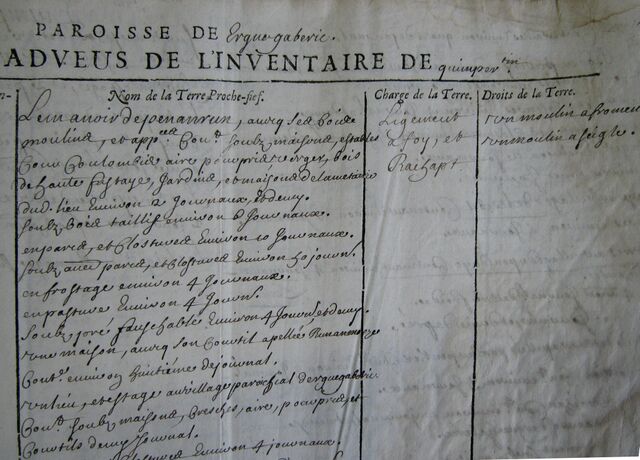 PAROISSE DE Ergue-gaberic.
ADVEUS DE L'INVENTAIRE DE quimper
Nom de la Terre Proche-fief.
Charge de la Terre.
Droits de la Terre.
Le manoir de penanrun, avecq ses bois de
moulins, et app. Cont. soubz maisons, estables
Cour Coulombier aire pourpris verger, bois
de haute fustaye, Jardins, et maisons de la metairie
dud. lieu Environ 2 Journaux, et demy.
soubz bois taillif environ 6 Journaux.
en parcs, et Clostures Environ 10 Journaux.
soubz parcs, et Closture Environ Journ.
en frostage environ 4 Journaux.
en pasture Environ 4 Journ.
soubz pré fauchable Environ 4 Journ. et demy.
une maison, avecq son Courtil apellée
Cont. environ huitiéme de journal.
un lieu, et estage au village parochial d'ergue gaberic
Cont. soubz maisons, Cresches, aire, pourpris, et
Courtils demy Journal.
Clostures Environ 4 journaux.
Ligement
a foy, et
Rachapt
un moulin a froment
un moulin a seigle.